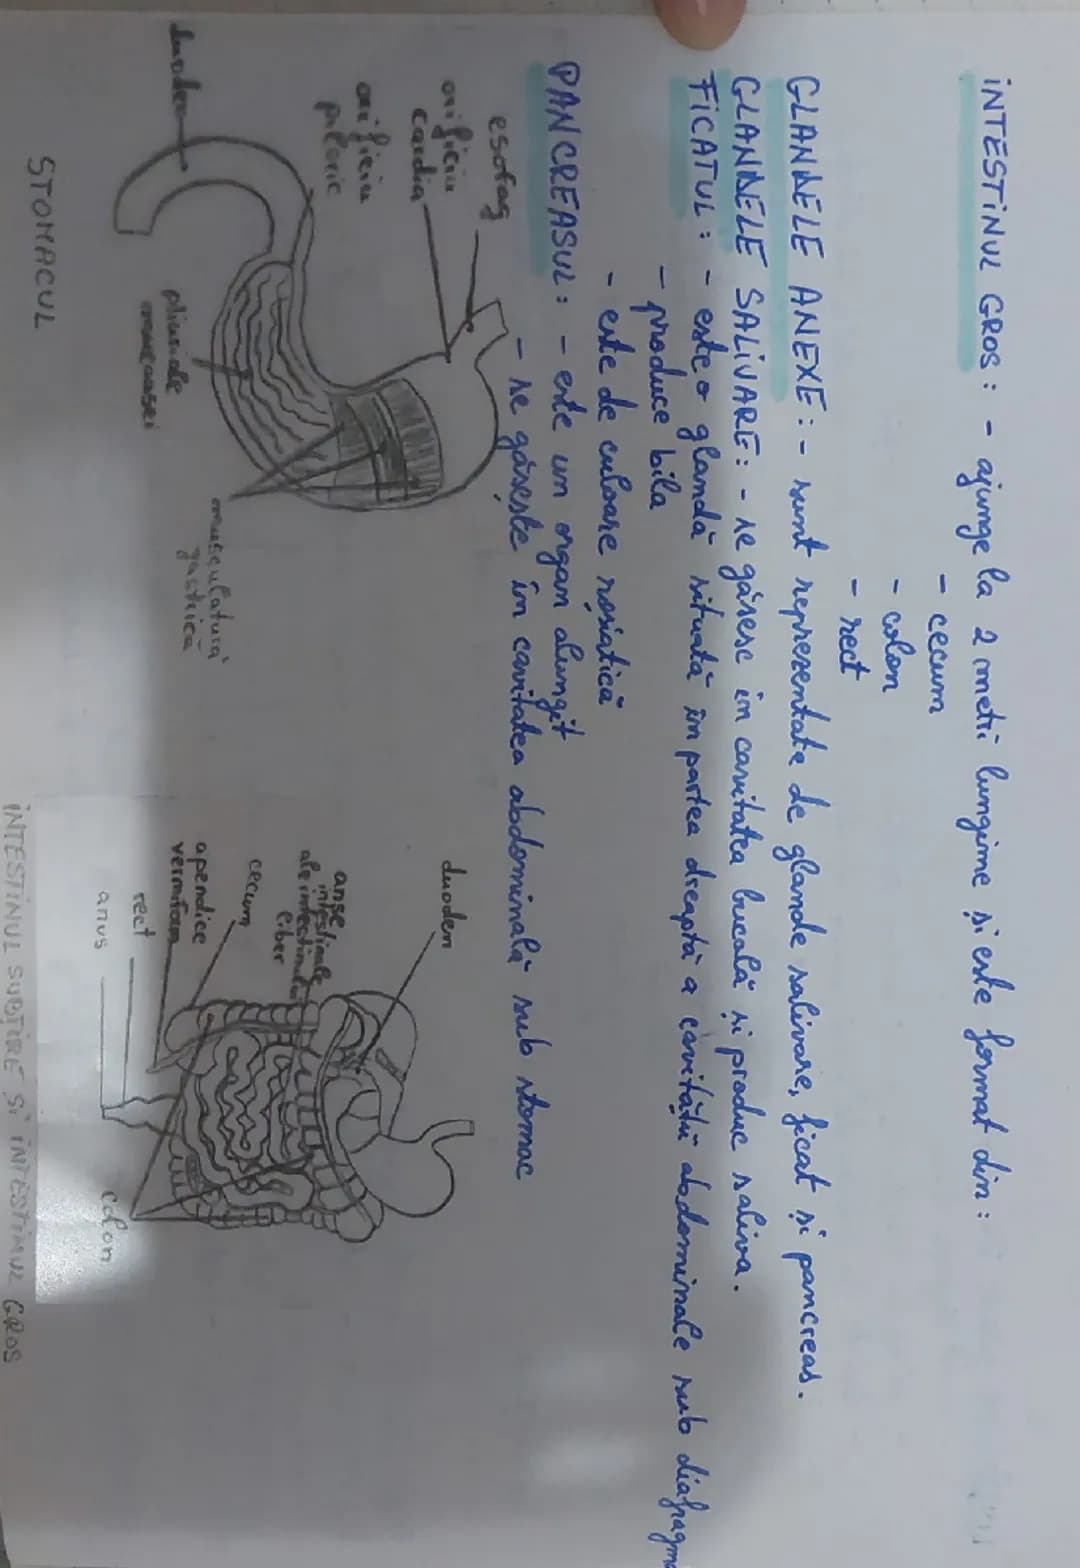 INTESTINUL GROS: - ajunge la 2 metri lungime și este format din:
- cecum
- colon
- rect
GLANDELE ANEXE: - sunt reprezentate de glande salivare, ficat și pancreas.
GLANDELE SALIVARE: - se găsesc în cavitatea bucală și produc saliva.
FICATUL: - este o glandă situată în partea dreaptă a cavității abdominale sub diafragm
- produce bila
- este de culoare roșiatică
PANCREASUL: - este un organ alungit
- se găsește în cavitatea abdominală sub stomac
esofag
orificiu
cardia
orificiu
piloric
duoden
pliurile
mucoasei
musculatură
gastrică
STOMACUL
duoden
anse
intestinale
ale intestinului
cecum
apendice
vermiform
rect
anus
colon
INTESTINUL SUBȚIRE ȘI INTESTINUL GROS